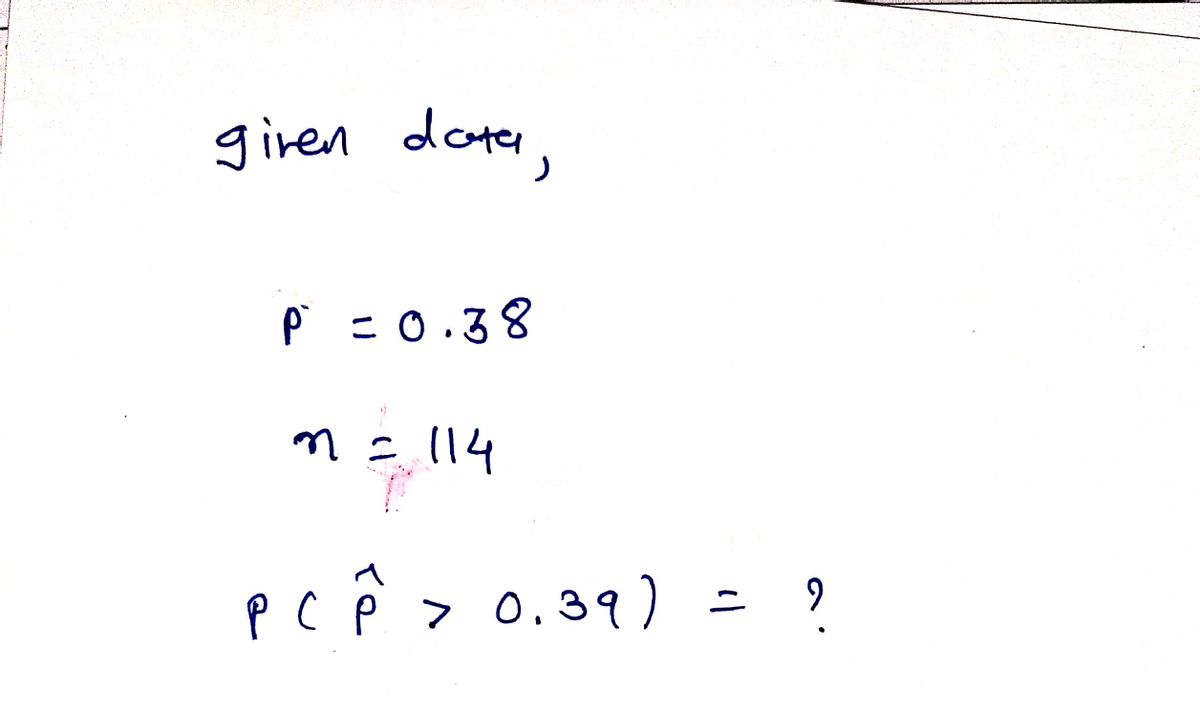 given data,
p = 0.38
n = 114
P ( p̂ > 0.39 ) = ?